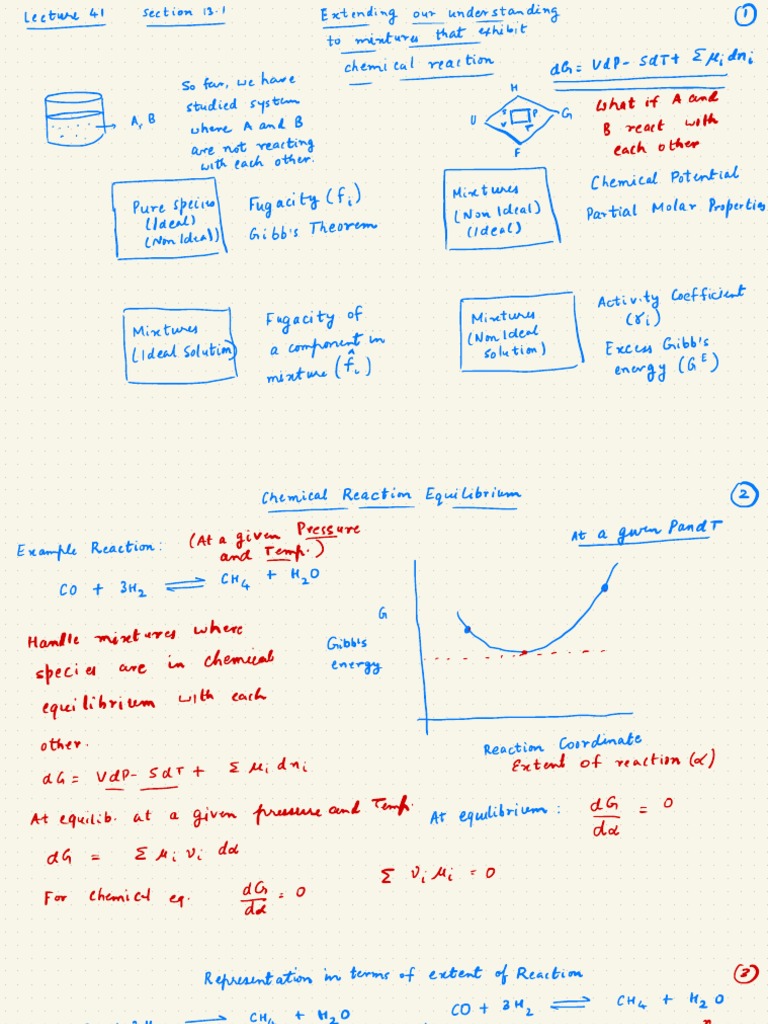 Lecture 41 Section 13.1
Extending our understanding
to mixtures that exhibit
chemical reaction
1
dG = VdP - SdT + Σ μi dni
A, B
So far, we have
studied system
where A and B
are not reacting
with each other.
H
U
G
F
S
P
V
T
What if A and
B react with
each other
Pure Species
(Ideal)
(Non Ideal)
Fugacity (fi)
Gibb's Theorem
Mixtures
(Non Ideal)
(Ideal)
Chemical Potential
Partial Molar Properties
Mixtures
(Ideal Solution)
Fugacity of
a component in
mixture (f̂i)
Mixtures
(Non Ideal
Solution)
Activity Coefficient
(γi)
Excess Gibb's
energy (G^E)
Chemical Reaction Equilibrium
2
Example Reaction: (At a given Pressure
and Temp.)
CO + 3H2 ⇌ CH4 + H2O
At a given P and T
G
Gibb's
energy
Reaction Coordinate
Extent of reaction (α)
Handle mixtures where
species are in chemical
equilibrium with each
other.
dG = VdP - SdT + Σ μi dni
At equilib. at a given pressure and Temp.
dG = Σ μi νi dα
For chemical eq. dG/dα = 0
At equilibrium: dG/dα = 0
Σ νi μi = 0
Representation in terms of extent of Reaction
3
CH4 + H2O
CO + 3H2 ⇌ CH4 + H2O